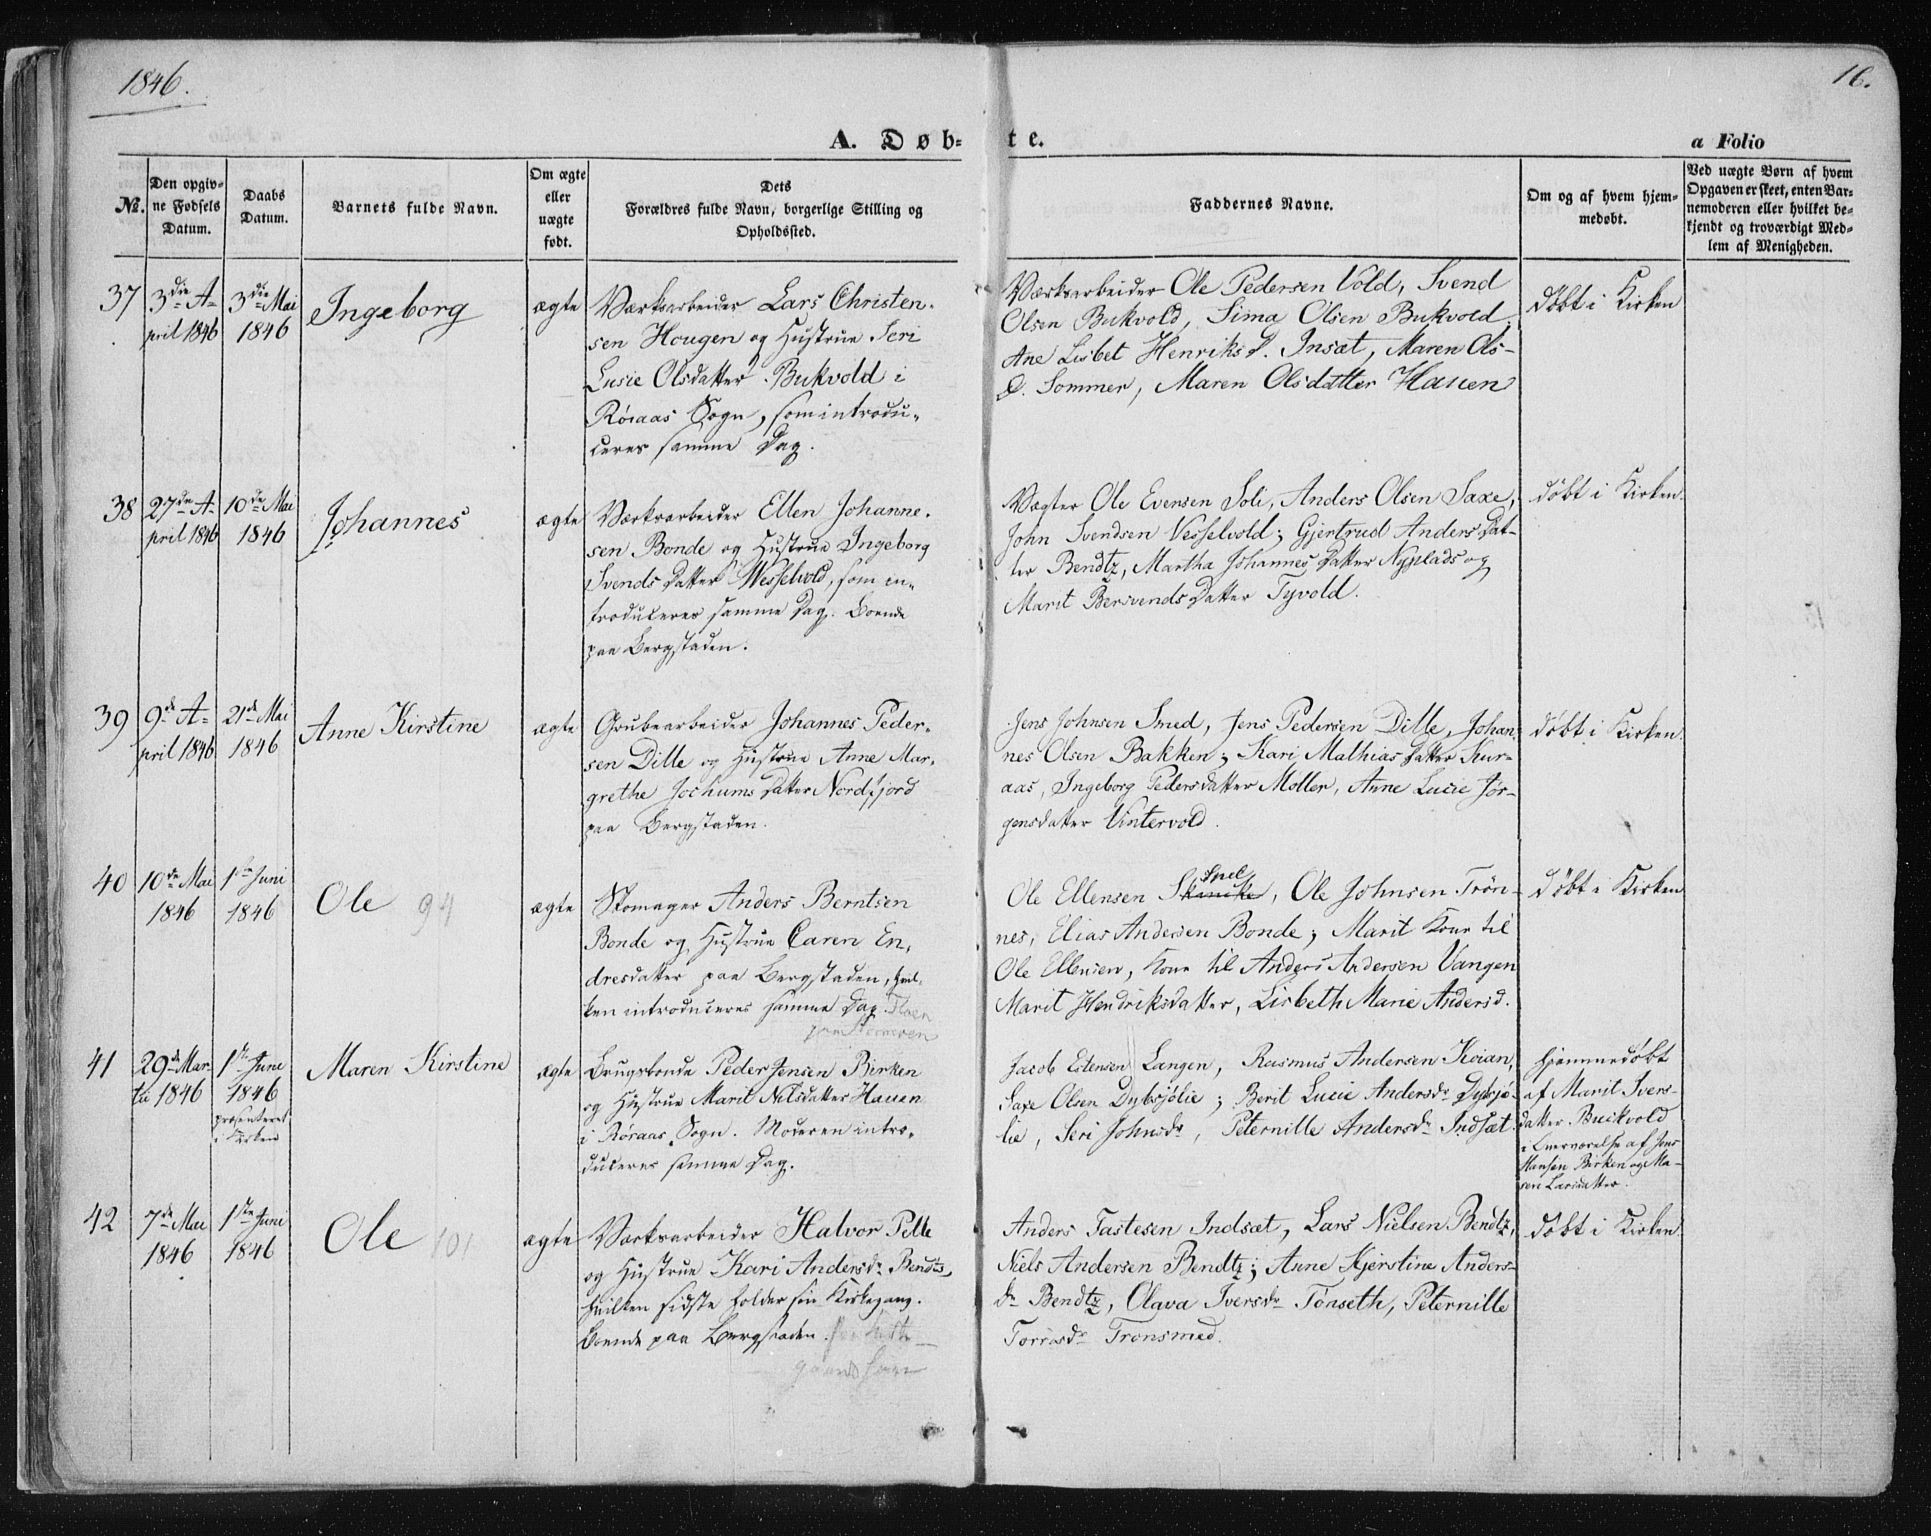 1846.
16.
A. Døb=
te.
a Folio
No.
Den opgiv=
ne Fødsels
Datum.
Daabs
Datum.
Barnets fulde Navn.
Om ægte
eller
uægte
født.
Dets
Forældres fulde Navn, borgerlige Stilling og
Opholdssted.
Faddernes Navne.
Om og af hvem hjem=
medøbt.
Ved uægte Børn af hvem
Opgaven er skeet, enten Bar=
nemoderen eller hvilket be=
kjendt og troværdigt Med=
lem af Menigheden.
37
3die A-
pril 1846
3die Mai
1846
Ingeborg
ægte
Værksarbeider Lars Christen-
sen Hougen og Hustrue Seri
Lusie Olsdatter Bukvold i
Røraas Sogn, som introdu-
ceres samme Dag.
Værksarbeider Ole Pedersen Vold, Svend
Olsen Bukvold, Sima Olsen Bukvold,
Ane Lisbet Henriks D. Insæt, Maren Ols-
D. Sommer, Maren Olsdatter Hauen
døbt i Kirken
38
27de A-
pril 1846
10de Mai
1846
Johannes
ægte
Værksarbeider Ellen Johanne-
sen Bonde og Hustrue Ingeborg
Svends Datter Wesselvold, som in-
troduceres samme Dag. Boende
paa Bergstaden.
Vægter Ole Evensen Soli, Anders Olsen Saxe,
John Svendsen Vesselvold; Gjertrud Anders Dat-
ter Bendtz, Martha Johannes Datter Nyplads og
Marit Bersvends Datter Tyvold.
døbt i Kirken.
39
9de A-
pril 1846
21de Mai
1846
Anne Kirstine
ægte
Grubearbeider Johannes Peder-
sen Dille og Hustrue Anne Mar-
grethe Jochums Datter Nordfjord
paa Bergstaden.
Jens Johnsen Smed, Jens Pedersen Dille, Johan-
nes Olsen Bakken; Kari Mathias Datter Kur-
aas, Ingeborg Pedersdatter Møller, Anne Lucie Jør-
gensdatter Vintervold.
døbt i Kirken.
40
10de Mai
1846
1ste Juni
1846
Ole 94
ægte
Skomager Anders Berntsen
Bonde og Hustrue Caren En-
dresdatter paa Bergstaden, hvil-
ken introduceres samme Dag.
Snel
Ole Ellensen Skancke, Ole Johnsen Trøn-
nes, Elias Andersen Bonde; Marit Kone til
Ole Ellensen, Kone til Anders Andersen Vangen
Marit Hendriksdatter, Lisbeth Marie Andersd.
døbt i Kirken
41
29de Mar-
ts 1846
1ste June
1846
præsenteret
i Kirken
Maren Kirstine
ægte
Brugsbonde Peder Jensen Birken
og Hustrue Marit Nilsdatter Hauen
i Røraas Sogn. Moderen intro-
duceres samme Dag.
Jacob Estensen Langen, Rasmus Andersen Koian,
Saxe Olsen Dybsjølie; Berit Lucie Andersdr Dybsjø-
lie, Seri Johnsdr, Peternille Andersdr Indsæt.
hjemmedøbt
af Marit Ivers-
datter Buckvold
i Overværelse af Jens
Hansen Birken og Ma-
ren Larsdatter.
42
7de Mai
1846
1ste Juni
1846
Ole 101
ægte
Værksarbeider Halvor Pette
og Hustrue Kari Andersdr Bendtz,
hvilken sidste holder sin Kirkegang.
Boende paa Bergstaden.
Anders Tastesen Indsæt, Lars Nielsen Bendtz,
Niels Andersen Bendtz; Anne Kjerstine Anders-
dr Bendtz, Olava Iversdr Tønseth, Peternille
Torresdr Tronsmed.
døbt i Kirken.